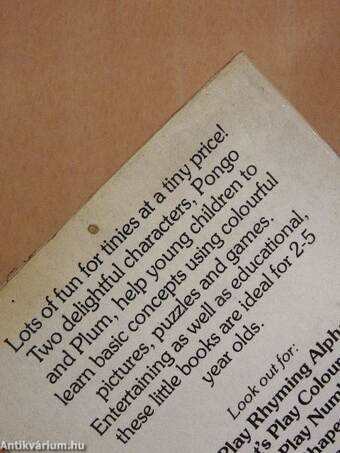 Lots of fun for tinies at a tiny price!
Two delightful characters, Pongo
and Plum, help young children to
learn basic concepts using colourful
pictures, puzzles and games.
Entertaining as well as educational,
these little books are ideal for 2-5
year olds.
Look out for:
Play Rhyming Alph
t's Play Colou
Play Num
hape
Antikvárium.hu